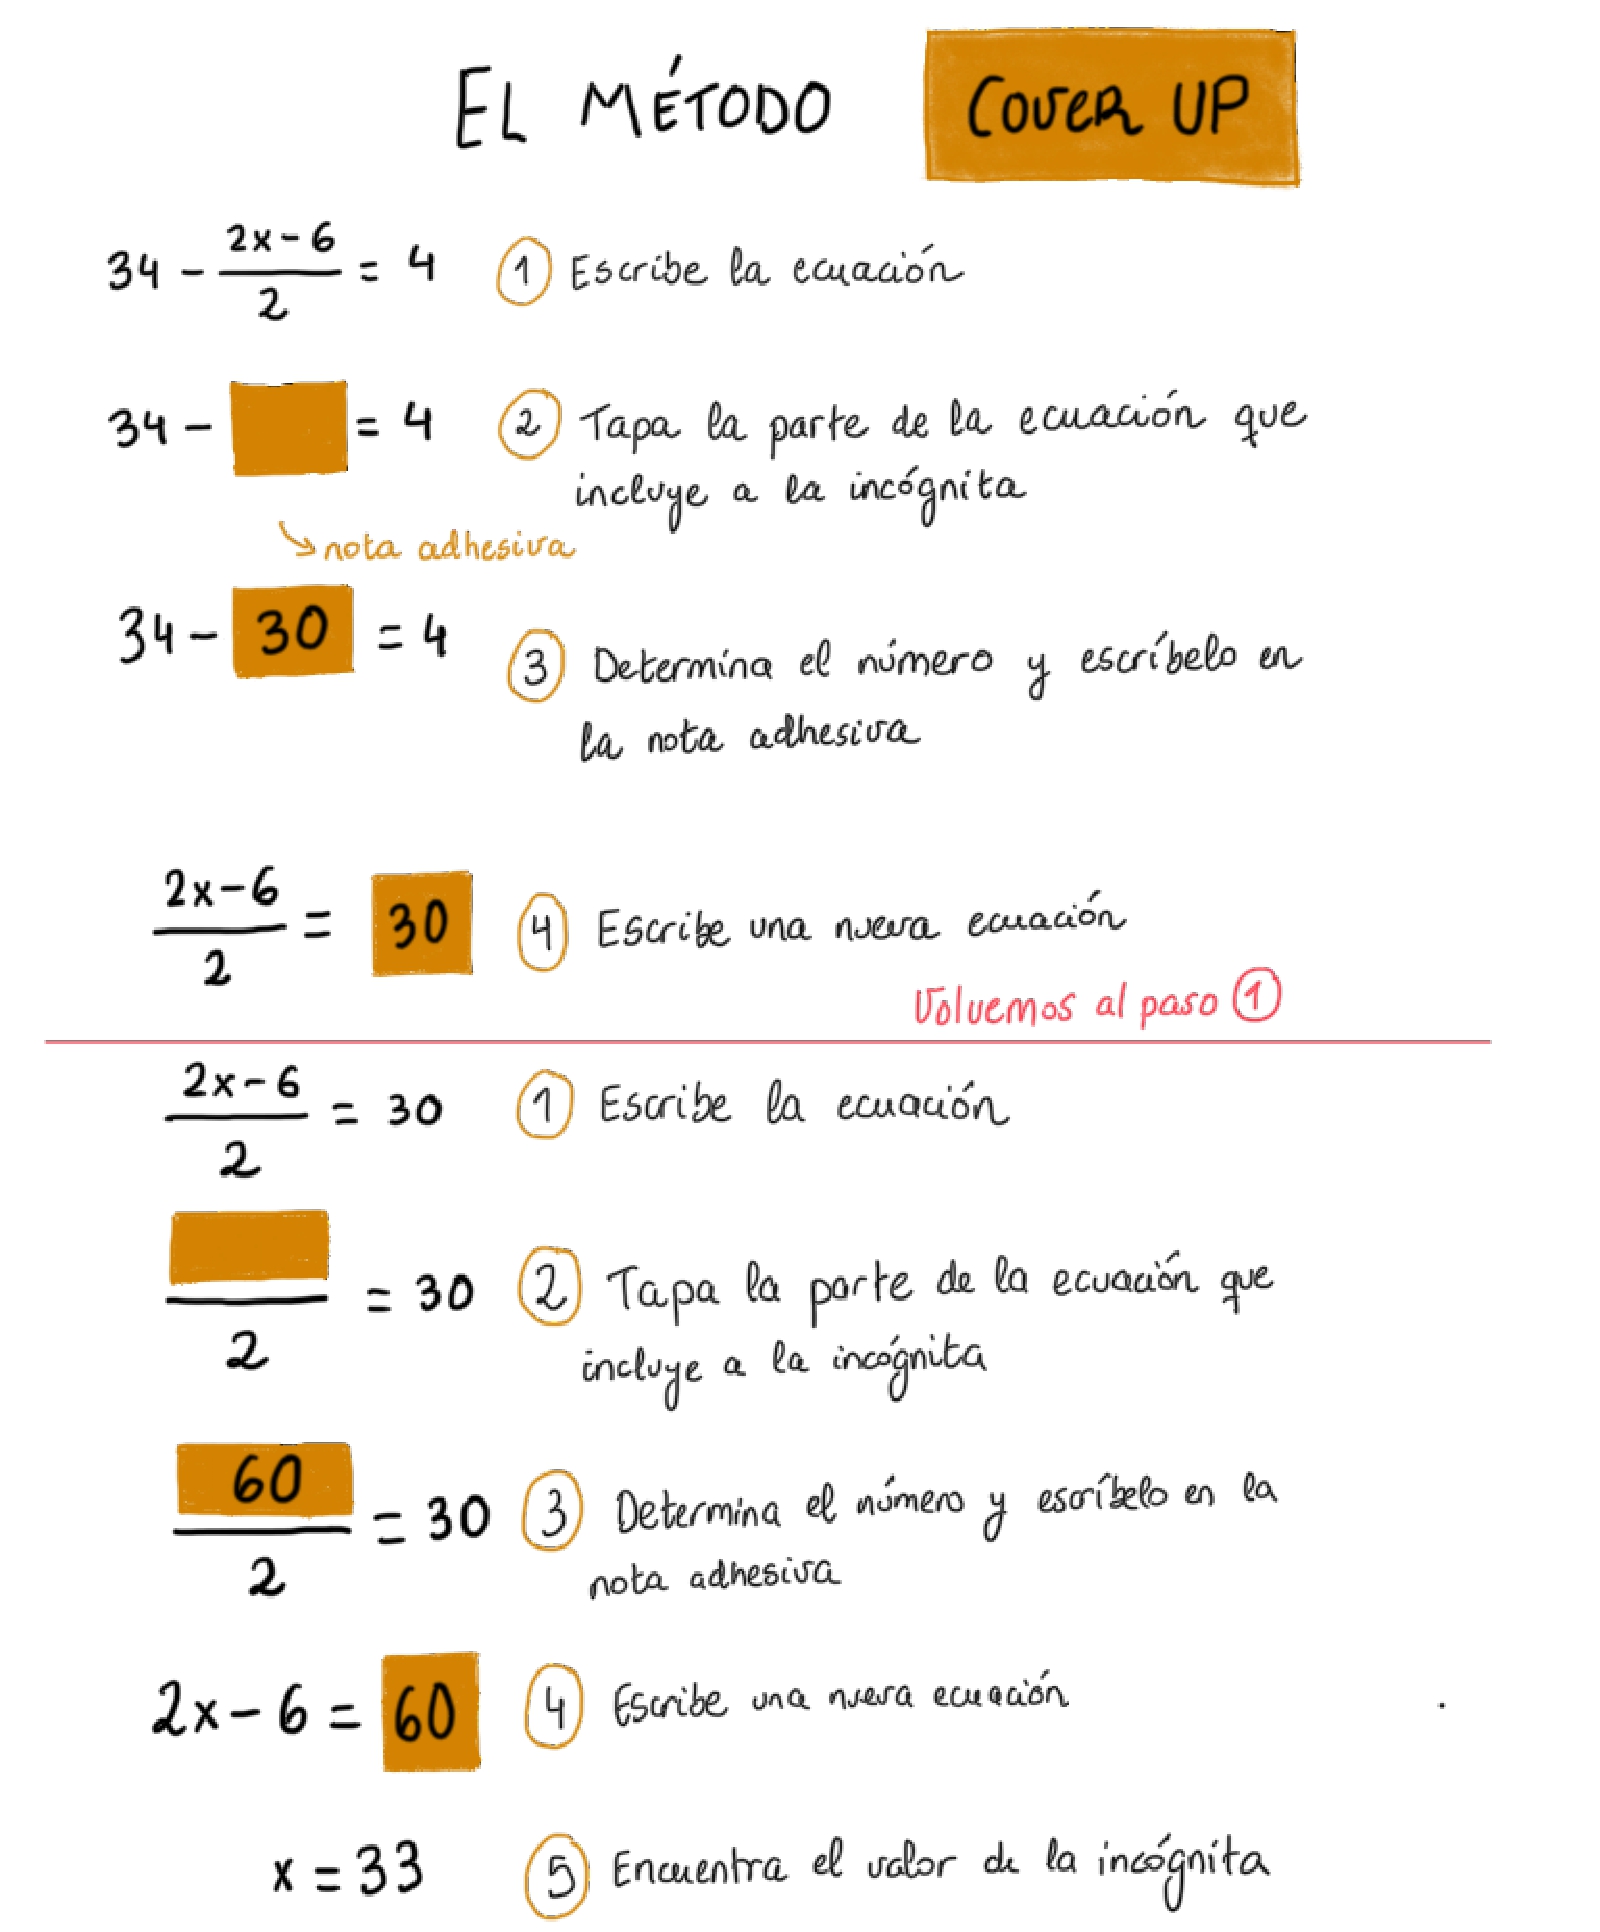 EL MÉTODO COVER UP
34 - (2x-6)/2 = 4 ① Escribe la ecuación
34 - = 4 ② Tapa la parte de la ecuación que
incluye a la incógnita
nota adhesiva
34 - 30 = 4 ③ Determina el número y escríbelo en
la nota adhesiva
(2x-6)/2 = 30 ④ Escribe una nueva ecuación
Volvemos al paso ①
(2x-6)/2 = 30 ① Escribe la ecuación
/2 = 30 ② Tapa la parte de la ecuación que
incluye a la incógnita
60/2 = 30 ③ Determina el número y escríbelo en la
nota adhesiva
2x-6 = 60 ④ Escribe una nueva ecuación
x = 33 ⑤ Encuentra el valor de la incógnita